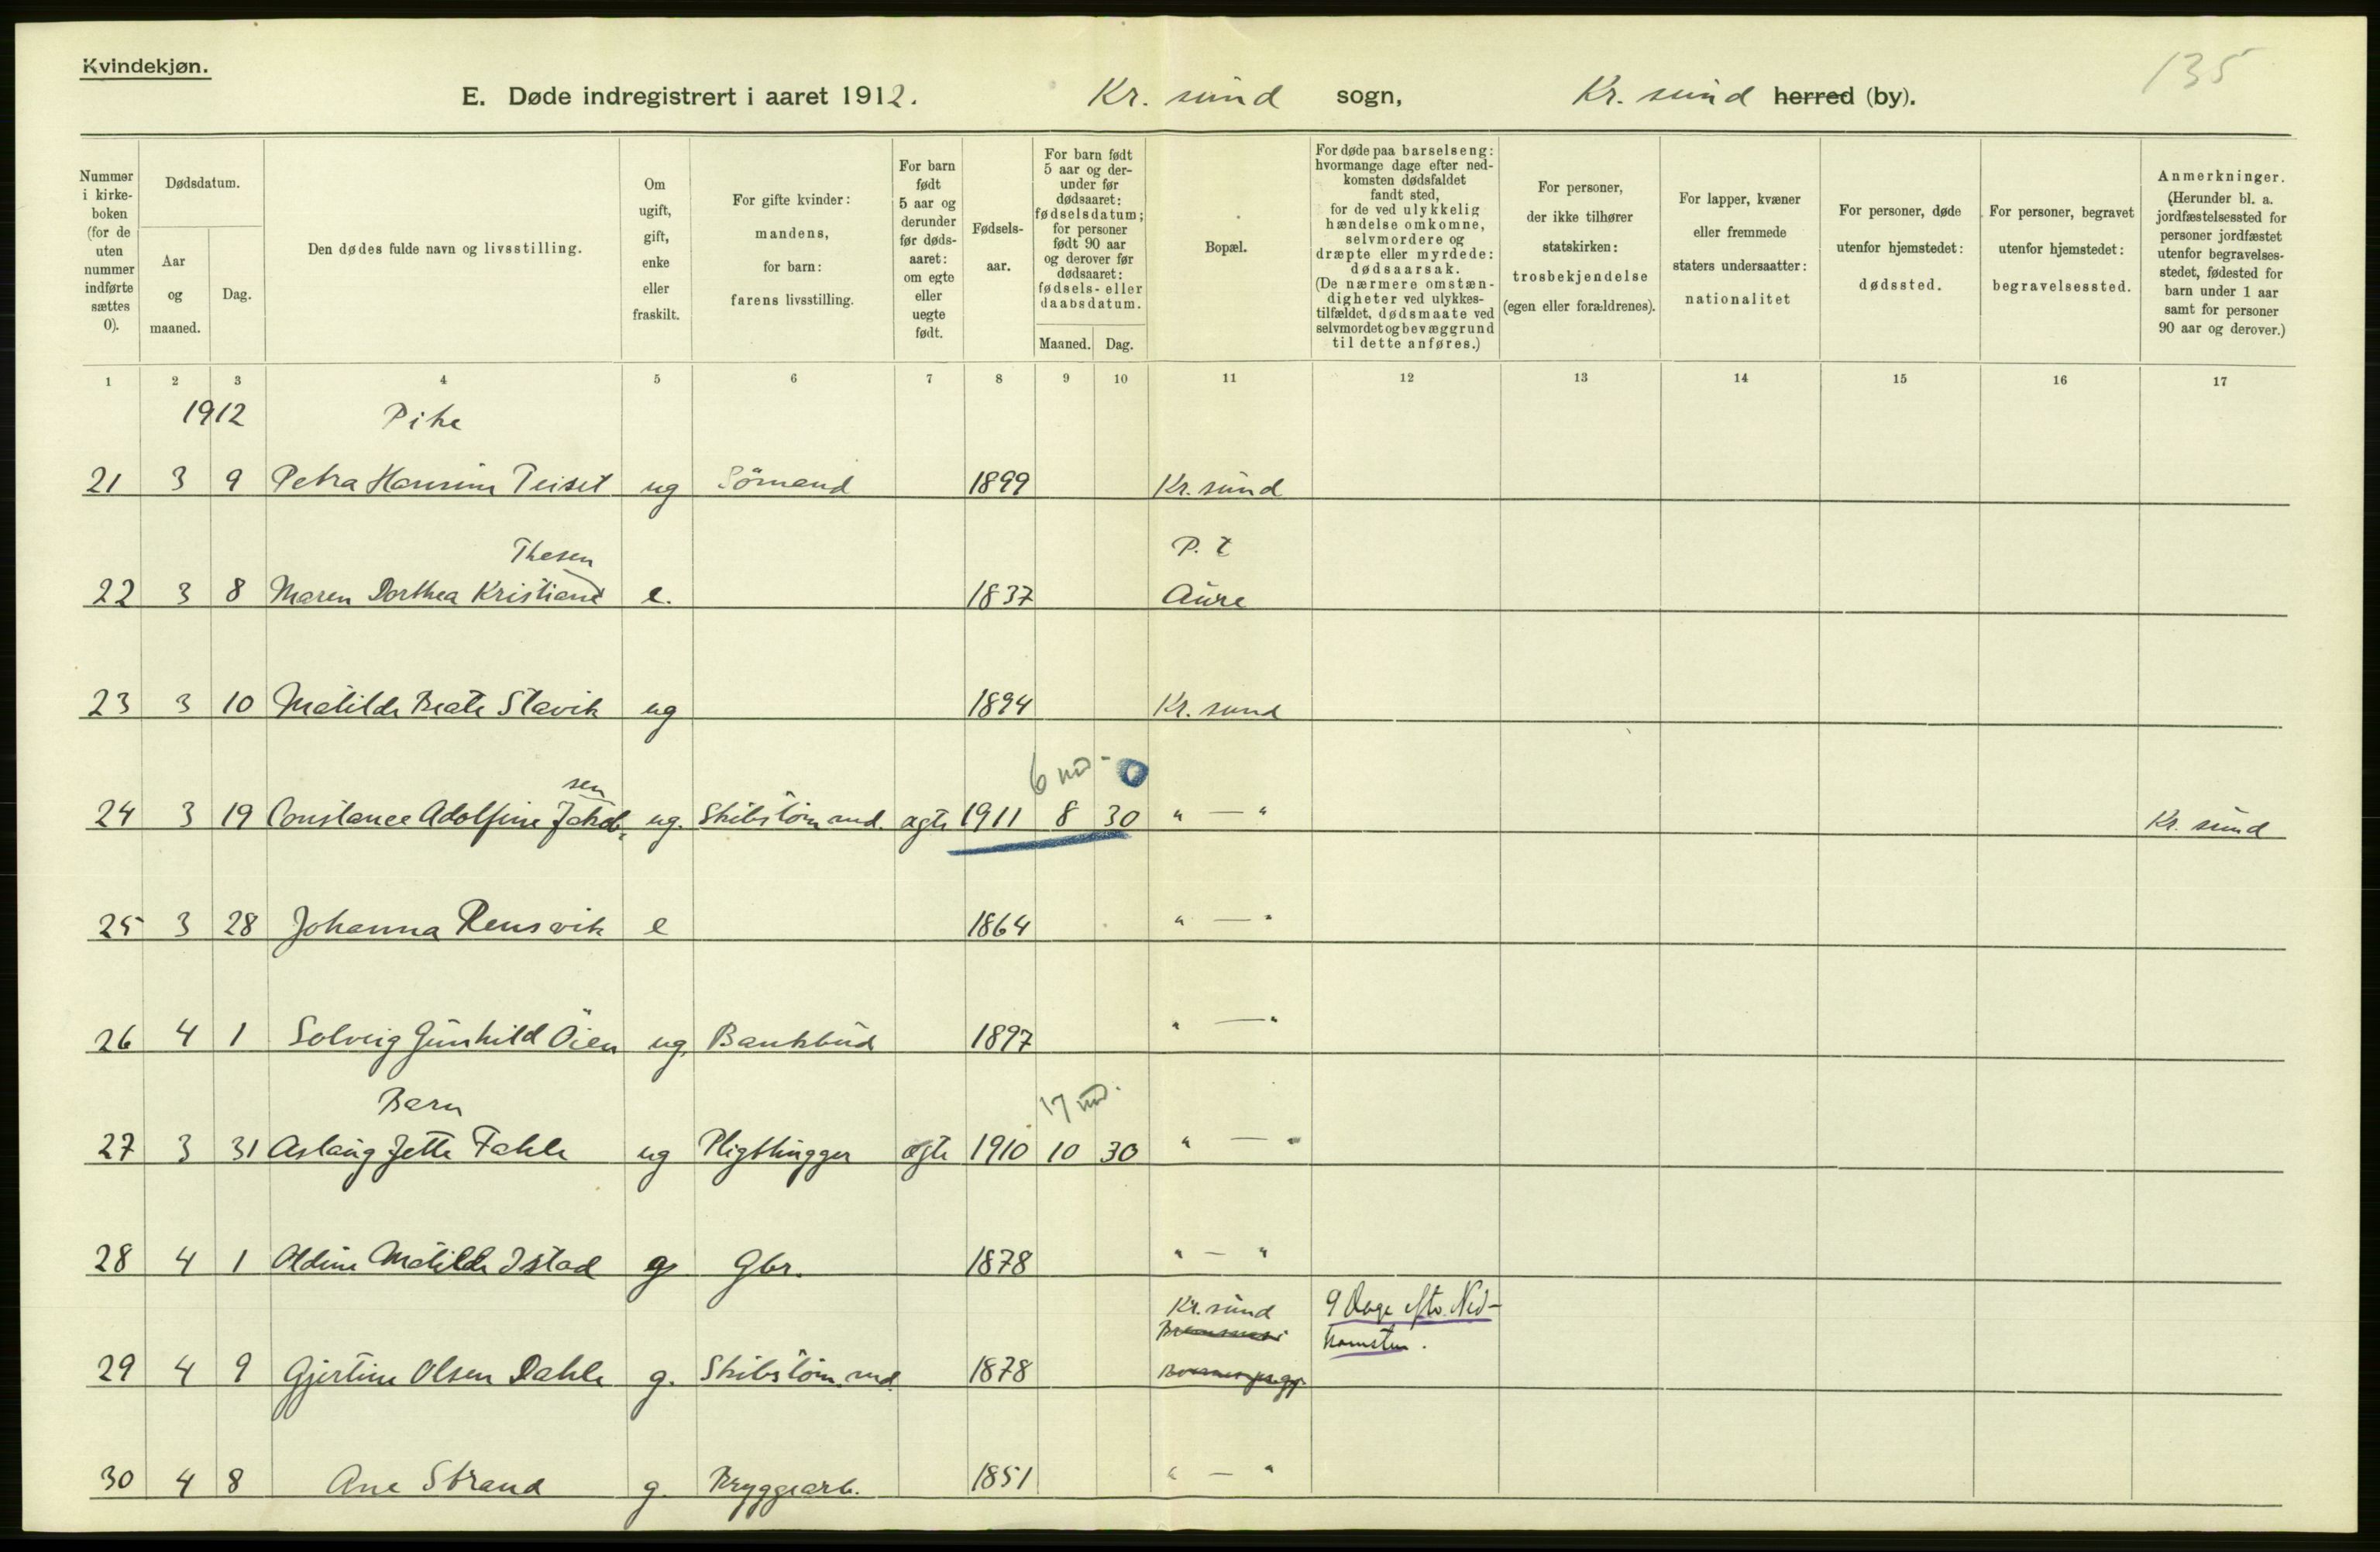 Kvindekjøn.
135
E. Døde indregistrert i aaret 1912. Kr. sund sogn, Kr. sund herred (by).
Nummer i kirkeboken (for de uten nummer indførte sættes 0).
Dødsdatum.
Aar og maaned.
Dag.
Den dødes fulde navn og livsstilling.
Om ugift, gift, enke eller fraskilt.
For gifte kvinder: mandens, for barn: farens livsstilling.
For barn født 5 aar og derunder før dødsaaret: om egte eller uegte født.
Fødselsaar.
For barn født 5 aar og derunder før dødsaaret: fødselsdatum; for personer født 90 aar og derover før dødsaaret: fødsels- eller daabsdatum.
Maaned. Dag.
Bopæl.
For døde paa barselseng: hvormange dage efter nedkomsten dødsfaldet fandt sted, for de ved ulykkelig hændelse omkomne, selvmordere og dræpte eller myrdede: dødsaarsak. (De nærmere omstændigheter ved ulykkestilfældet, dødsmaate ved selvmordet og bevæggrund til dette anføres.)
For personer, der ikke tilhører statskirken: trosbekjendelse (egen eller forældrenes).
For lapper, kvæner eller fremmede staters undersaatter: nationalitet
For personer, døde utenfor hjemstedet: dødssted.
For personer, begravet utenfor hjemstedet: begravelsessted.
Anmerkninger. (Herunder bl. a. jordfæstelsessted for personer jordfæstet utenfor begravelsesstedet, fødested for barn under 1 aar samt for personer 90 aar og derover.)
1 2 3 4 5 6 7 8 9 10 11 12 13 14 15 16 17
1912 Pike
21 3 9 Petra Hansine Teiset ug Sömand 1899 Kr. sund
Thesen P. t
22 3 8 Maren Dorthea Kristiane e. 1837 Aure
23 3 10 Matilde Beate Slavik ug 1894 Kr. sund
sen 6 md - 0
24 3 19 Constance Adolfine Jakob- ug. Skibstöm.md. ægte 1911 8 30 " — " Kr. sund
25 3 28 Johanna Rensvik e 1864 " — "
26 4 1 Solveig Gunhild Öien ug. Bankbud 1897 " — "
Barn 17 md.
27 3 31 Aslaug Jette Fahle ug Pligthugger ægte 1910 10 30 " — "
28 4 1 Oldine Matilde Istad g Gbr. 1878 " — "
Kr. sund 9 Dage eftr. Ned-
komsten.
29 4 9 Gjertine Olsen Dahle g. Skibstöm.md. 1878
30 4 8 Ane Strand g. Bryggearb. 1851 " — "